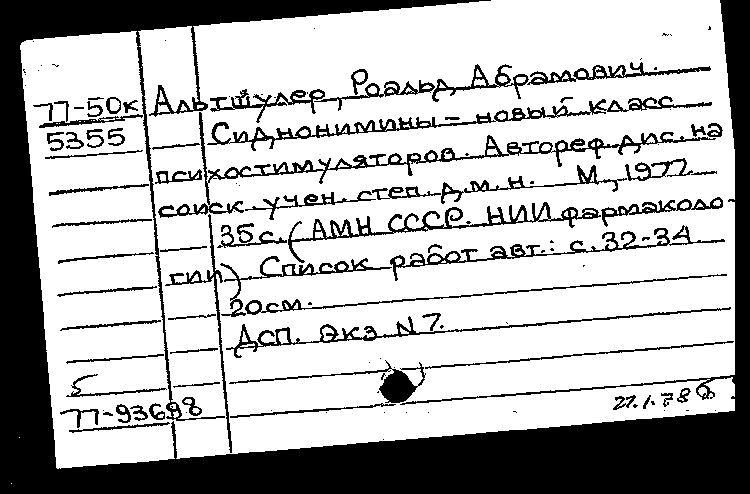 77-50к Альтшулер, Роальд Абрамович.
5355 Сиднонимины - новый класс
психостимуляторов. Автореф. дис. на
соиск. учен. степ. д.м.н. М., 1977.
35 с. (АМН СССР. НИИ фармаколо-
гии). Список работ авт.: с. 32-34
20 см.
Дсп. Экз N 7.
5
77-93698
27.1.78